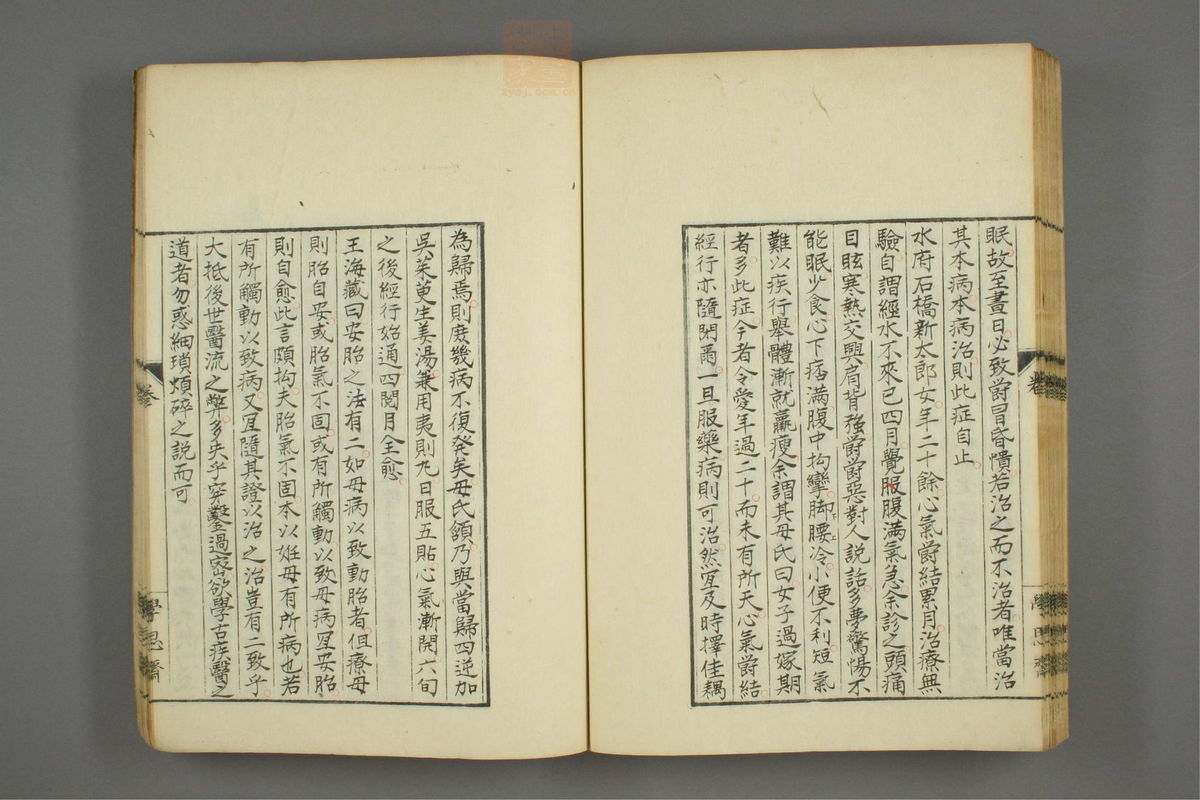 眠故至晝日必致欝冒昏憒若治之而不治者唯當治
其本病本病治則此症自止
水府石橋新太郎女年二十餘心氣欝結累月治療無
驗自謂經水不來已四月覺服腹満氣急余診之頭痛
目眩寒熱交興肩背強欝欝惡對人説話多夢驚惕不
能眠少食心下痞満腹中拘攣脚腰冷小便不利短氣
難以疾行舉體漸就羸瘦余謂其母氏曰女子過嫁期
者多此症今者令愛年過二十而未有所天心氣欝結
經行亦隨閉焉一旦服藥病則可治然宜及時擇佳耦
為歸焉則庶幾病不復発矣母氏頷乃與當歸四逆加
吳茱萸生姜湯兼用夷則丸日服五貼心氣漸開六旬
之後經行始通四閱月全愈
王海藏曰安胎之法有二如母病以致動胎者但療母
則胎自安或胎氣不固或有所觸動以致母病宜安胎
則自愈此言頗拘夫胎氣不固本以妊母有所病也若
有所觸動以致病又宜隨其證以治之治豈有二致乎
大抵後世醫流之弊多失乎穿鑿過密欲學古疾醫之
道者勿惑細瑣煩碎之説而可
卷
學思齋